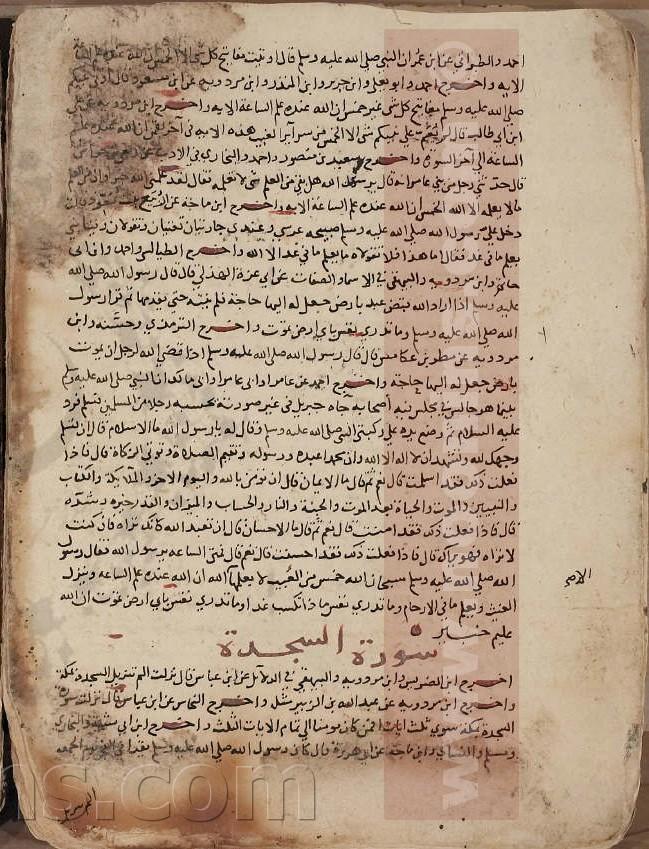 احمد والطبراني عن ابن عمر ان النبي صلى الله عليه وسلم قال اوتيت مفاتيح كل شي الا الخمس ان الله عنده علم الساعة
الايه واخرج احمد وابو يعلى وابن جرير وابن المنذر وابن مردويه عن ابن مسعود قال اوتي نبيكم
صلى الله عليه وسلم مفاتيح كل شي غير خمس ان الله عنده علم الساعة الايه واخرج ابن مردويه عن علي
ابن ابي طالب قال لم يعم على نبيكم شي الا الخمس من سراير الغيب هذه الايه في آخر لقمان ان الله عنده علم
الساعة الى آخر السورة واخرج سعيد بن منصور واحمد والبخاري في الادب عن ربعي بن حراش
قال حدثني رجل من بني عامر انه قال يرسول الله هل بقي من العلم شي لا تعلمه فقال لقد علمني الله خيرا وان من العلم
مالا يعلمه الا الله الخمس ان الله عنده علم الساعة الايه واخرج ابن ماجه عن الربيع بنت معوذ قالت
دخل علي رسول الله صلى الله عليه وسلم صبيحة عرسي وعندي جاريتان تغنيان وتقولان وفينا نبي
يعلم ما في غد فقال اما هذا فلا تقولاه ما يعلم ما في غد الا الله واخرج الطيالسي واحمد وابن ابي
حاتم وابن مردويه والبيهقي في الاسما والصفات عن ابي عزة الهذلي قال قال رسول الله صلى الله
عليه وسلم اذا اراد الله قبض عبد بارض جعل له اليها حاجة فلم ينته حتى يقدمها ثم قرا رسول
الله صلى الله عليه وسلم وما تدري نفس باي ارض تموت واخرج الترمذي وحسنه وابن
مردويه عن مطر بن عكامس قال قال رسول الله صلى الله عليه وسلم اذا قضى الله لرجل ان يموت
بارض جعل له اليها حاجة واخرج احمد عن عامر او ابي عامر او ابي مالك ان النبي صلى الله عليه وسلم
بينما هو جالس في مجلس فيه أصحابه جاه جبريل في غير صورته يحسبه رجلا من المسلمين فسلم فرد
عليه السلام ثم وضع يده على ركبتي النبي صلى الله عليه وسلم وقال له يارسول الله ما الاسلام قال ان تسلم
وجهك لله وتشهد ان لا اله الا الله وان محمدا عبده ورسوله وتقيم الصلاة وتوتي الزكاة قال فاذا
فعلت ذلك فقد اسلمت قال نعم ثم قال ما الايمان قال ان تومن بالله واليوم الاخر والملايكة والكتاب
والنبيين والموت والحياة بعد الموت والجنة والنار والحساب والميزان والقدر خيره وشره
قال فاذا فعلت ذلك فقد امنت قال نعم ثم قال ما الاحسان قال ان تعبد الله كانك تراه فان كنت
لا تراه فهو يراك قال فاذا فعلت ذلك فقد احسنت قال نعم قال فمتى الساعه يرسول الله فقال رسول
الله صلى الله عليه وسلم سبحان الله خمس من الغيب لا يعلمها الا الله ان الله عنده علم الساعه وينزل
الغيث ويعلم ما في الارحام وما تدري نفس ماذا تكسب غدا وما تدري نفس باي ارض تموت ان الله
عليم خبير
سورة السجدة
اخرج ابن الضريس وابن مردويه والبيهقي في الدلائل عن ابن عباس قال نزلت الم تنزيل السجدة بمكة
واخرج ابن مردويه عن عبد الله بن الزبير مثله واخرج النحاس عن ابن عباس قال نزلت سورة
السجدة بمكة سوى ثلث ايات افمن كان مومنا الى تمام الايات الثلث واخرج ابن ابي شيبة والبخاري
ومسلم والنسائي وابن ماجه عن ابي هريرة قال كان رسول الله صلى الله عليه وسلم يقرا في الفجر يوم الجمعه
ns.com